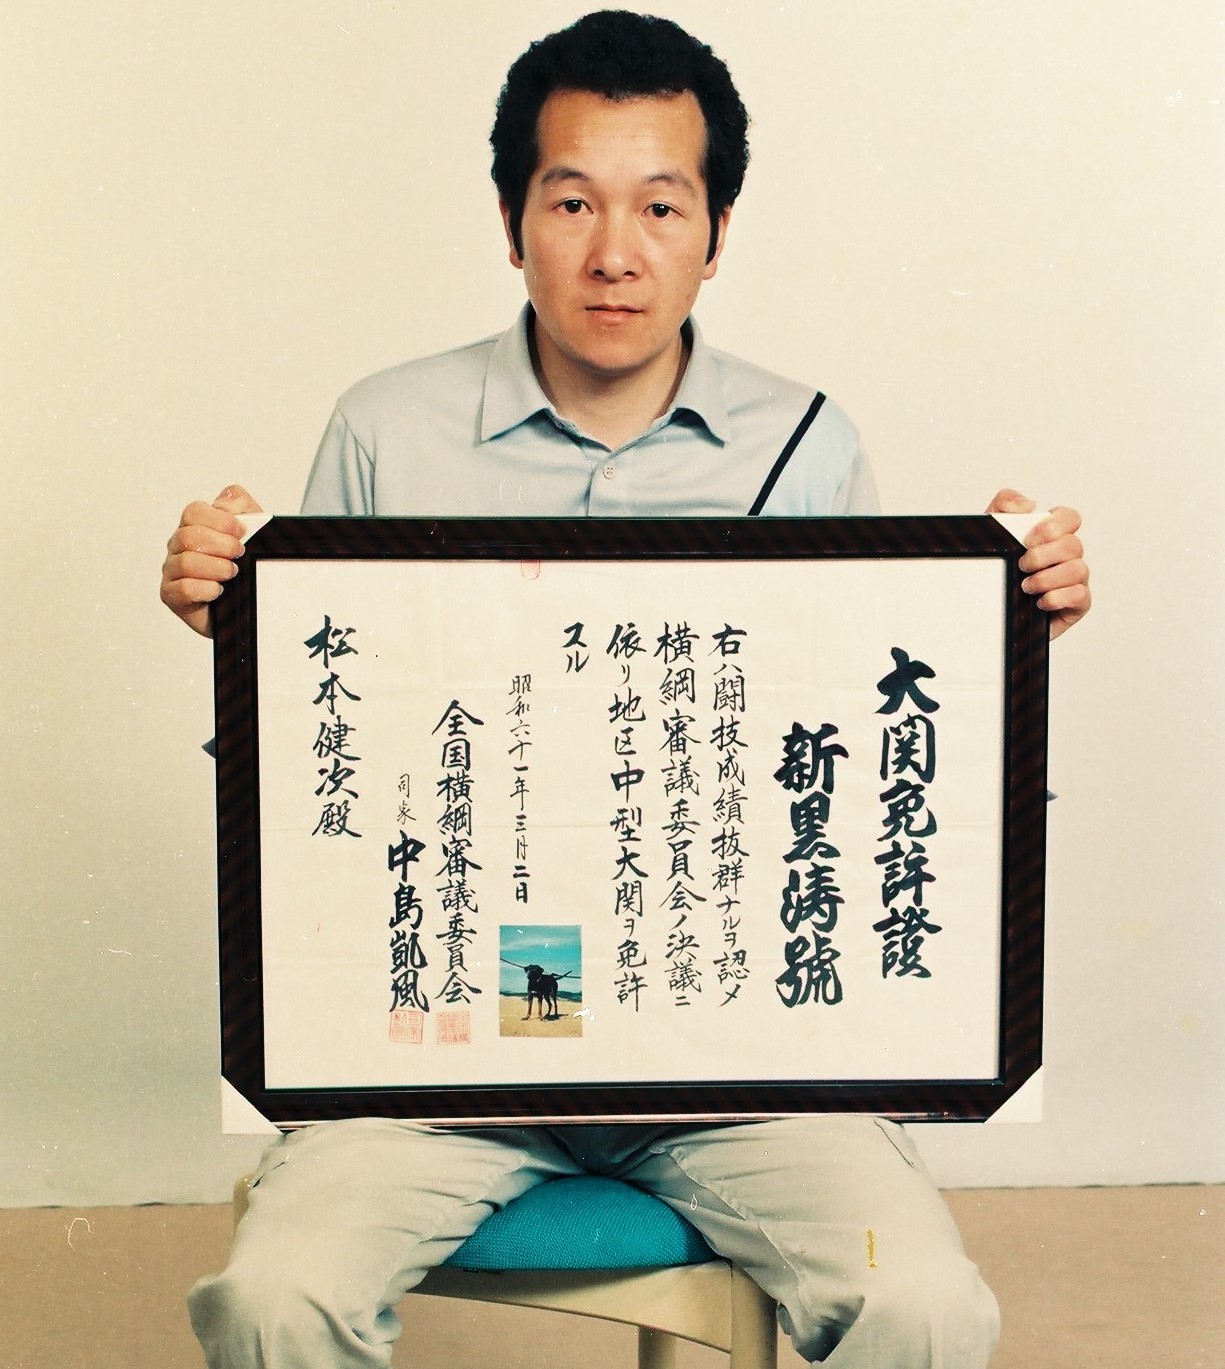 大関免許證
新黒涛號
右ハ闘技成績抜群ナルヲ認メ
横綱審議委員会ノ決議ニ
依リ地区中型大関ヲ免許
スル
昭和六十一年三月二日
全国横綱審議委員会
司家 中島凱風
松本健次殿